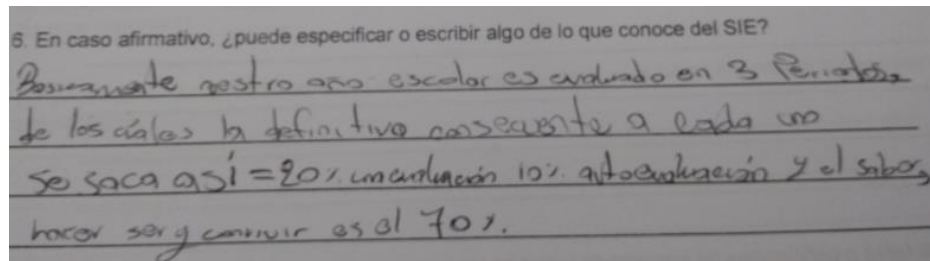 6. En caso afirmativo, ¿puede especificar o escribir algo de lo que conoce del SIE?
Basicamente nostro año escolar es evaluado en 3 Periodos,
de los cuales la definitiva consecuente a cada uno
se saca así = 20% coevaluación 10% autoevaluación y el saber,
hacer ser y convivir es el 70%.